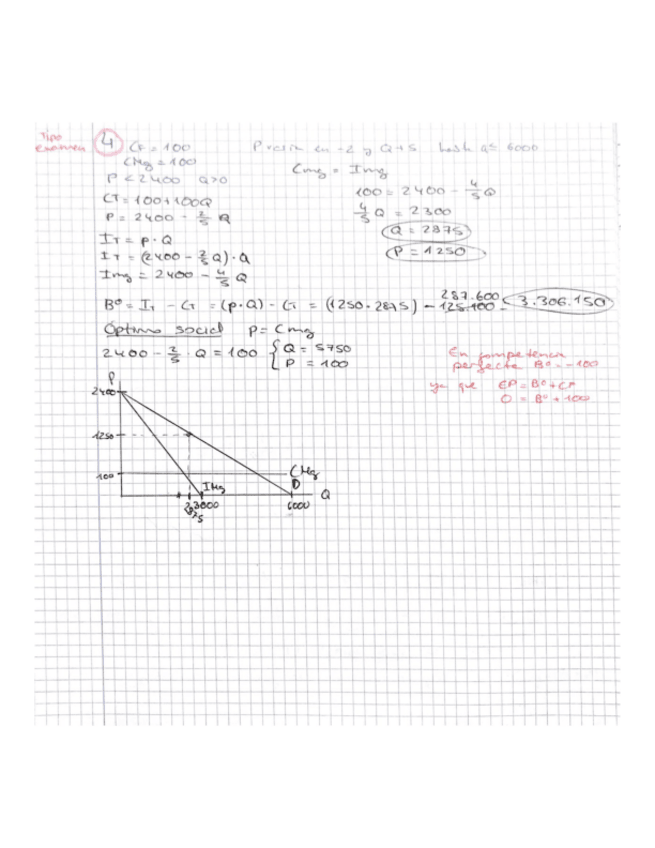 Tipo examen
4 CF = 100 P crece en -2 y Q+5 hasta Q = 6000
CMg = 100 Cmg = Img
P < 2400 Q>0 100 = 2400 - 4/5 Q
CT = 100+100Q 4/5 Q = 2300
P = 2400 - 2/5 Q Q = 2875
IT = P · Q P = 1250
IT = (2400 - 2/5 Q) · Q
Img = 2400 - 4/5 Q
Bº = IT - CT = (P·Q) - CT = (1250·2875) - 287.600 125.100 = 3.306.150
Óptimo social P = Cmg
2400 - 2/5 · Q = 100 { Q = 5750
P = 100
En competencia
perfecta Bº = -100
ya que EP = Bº + CF
0 = Bº + 100
P
2400
1250
100
CMg
D
IMg
Q
2875
3000
6000